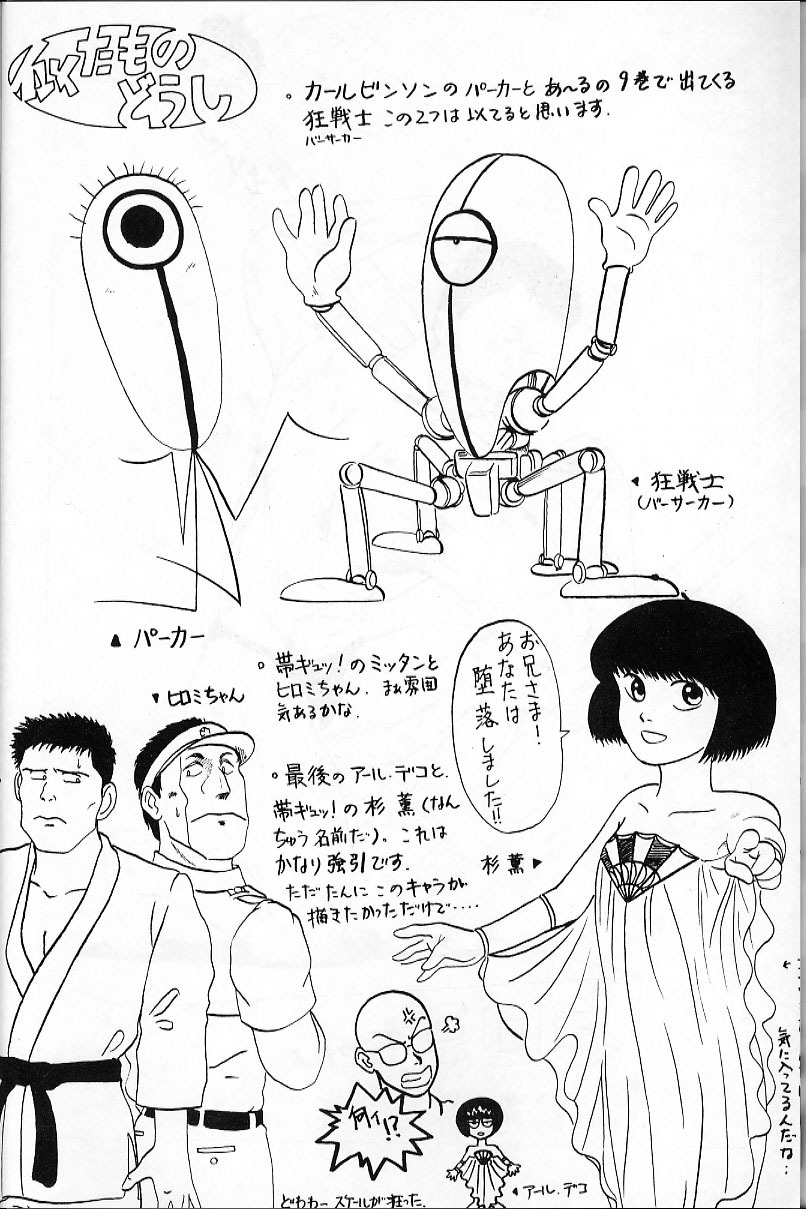 似たもの
どうし
。カールビンソンの パーカーと あ〜るの 9巻で 出てくる
狂戦士 この2つは 似てると思います.
バーサーカー
◀ 狂戦士
(バーサーカー)
▲ パーカー
。帯ギュッ!のミッタンと
ヒロミちゃん. まぁ雰囲
気あるかな.
▼ヒロミちゃん
お兄さま!
あなたは
堕落
しました!!
。最後の アール・デコと.
帯ギュッ!の 杉 薫(なん
ちゅう 名前だ)。これは
かなり強引です.
ただたんに このキャラが
描きたかっただけで‥‥
杉 薫▶
気に入ってるんだな‥
何ィ!?
◀アール・デコ
どわわー スケールが狂った.